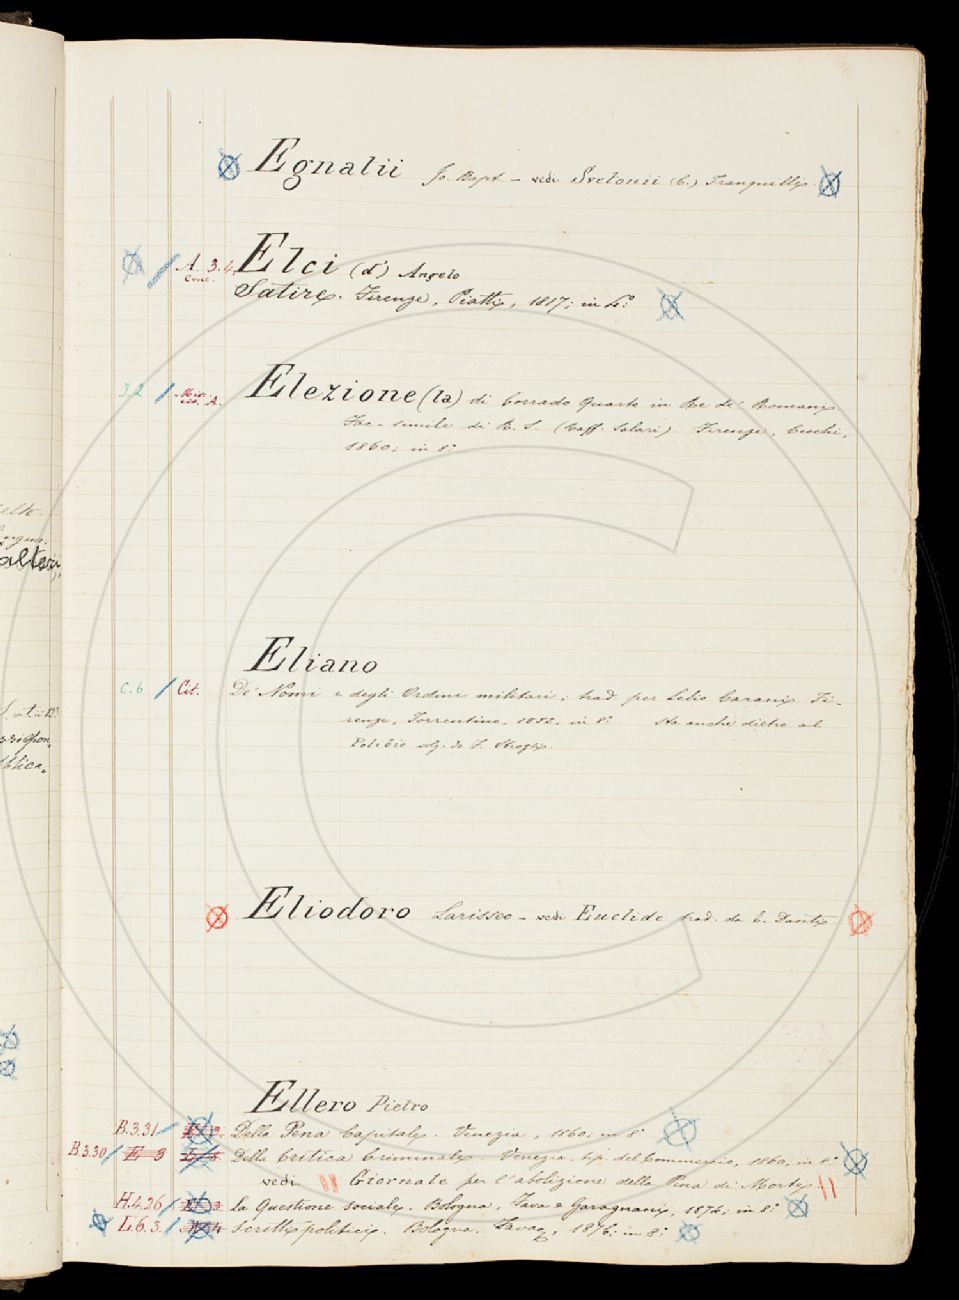 Egnatii Jo. Bapt. – vedi Svetonii (C.) Tranquilli
A. 3.4. Elci (d') Angelo
Conc. Satire. Firenze, Piatti, 1817; in 4.°
J.2 Elezione (la) di Corrado Quarto in Re de' Romani.
Fac-simile di R. S. (Raff. Salari). Firenze, Cecchi,
1860; in 8.°
Eliano
C.6 Cit. De' Nomi e degli Ordini militari; trad. per Lelio Carani. Fi-
renze, Torrentino, 1552; in 8.° Sta anche dietro al
Polibio
Eliodoro Larisseo – vedi Euclide trad. da E. Danti
Ellero Pietro
B.3.31 Della Pena Capitale. Venezia, 1860; in 8.°
B3.30 E 3 Della Critica Criminale. Venezia. tip. del Commercio, 1860, in 8.°
vedi Giornale per l'abolizione della Pena di Morte
H.4.26 la Questione sociale. Bologna, Fava e Garagnani, 1874; in 8.°
L.6.3. Scritti politici. Bologna. Fava, 1876; in 8.°
ielte
alteri
blica.